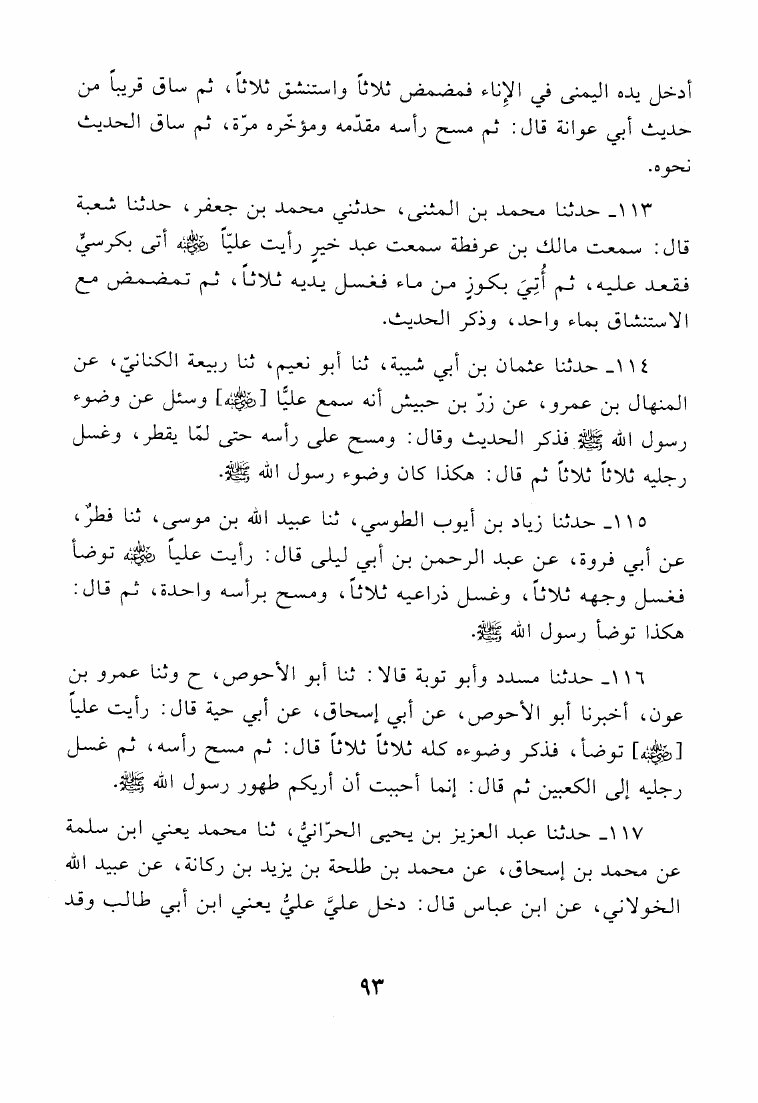 أدخل يده اليمنى في الإناء فمضمض ثلاثاً واستنشق ثلاثاً، ثم ساق قريباً من
حديث أبي عوانة قال: ثم مسح رأسه مقدّمه ومؤخّره مرّة، ثم ساق الحديث
نحوه.
١١٣ـ حدثنا محمد بن المثنى، حدثني محمد بن جعفر، حدثنا شعبة
قال: سمعت مالك بن عرفطة سمعت عبد خيرٍ رأيت عليّاً رضي الله عنه أتى بكرسيٍّ
فقعد عليه، ثم أُتِيَ بكوزٍ من ماء فغسل يديه ثلاثاً، ثم تمضمض مع
الاستنشاق بماء واحد، وذكر الحديث.
١١٤ـ حدثنا عثمان بن أبي شيبة، ثنا أبو نعيم، ثنا ربيعة الكنانيّ، عن
المنهال بن عمرو، عن زرّ بن حبيش أنه سمع عليًّا [رضي الله عنه] وسئل عن وضوء
رسول الله ﷺ فذكر الحديث وقال: ومسح على رأسه حتى لمّا يقطر، وغسل
رجليه ثلاثاً ثلاثاً ثم قال: هكذا كان وضوء رسول الله ﷺ.
١١٥ـ حدثنا زياد بن أيوب الطوسي، ثنا عبيد الله بن موسى، ثنا فطرٌ،
عن أبي فروة، عن عبد الرحمن بن أبي ليلى قال: رأيت علياً رضي الله عنه توضأ
فغسل وجهه ثلاثاً، وغسل ذراعيه ثلاثاً، ومسح برأسه واحدة، ثم قال:
هكذا توضأ رسول الله ﷺ.
١١٦ـ حدثنا مسدد وأبو توبة قالا: ثنا أبو الأحوص، ح وثنا عمرو بن
عون، أخبرنا أبو الأحوص، عن أبي إسحاق، عن أبي حية قال: رأيت علياً
[رضي الله عنه] توضأ، فذكر وضوءه كله ثلاثاً ثلاثاً قال: ثم مسح رأسه، ثم غسل
رجليه إلى الكعبين ثم قال: إنما أحببت أن أريكم طهور رسول الله ﷺ.
١١٧ـ حدثنا عبد العزيز بن يحيى الحرّانيُّ، ثنا محمد يعني ابن سلمة
عن محمد بن إسحاق، عن محمد بن طلحة بن يزيد بن ركانة، عن عبيد الله
الخولاني، عن ابن عباس قال: دخل عليَّ عليُّ يعني ابن أبي طالب وقد
٩٣